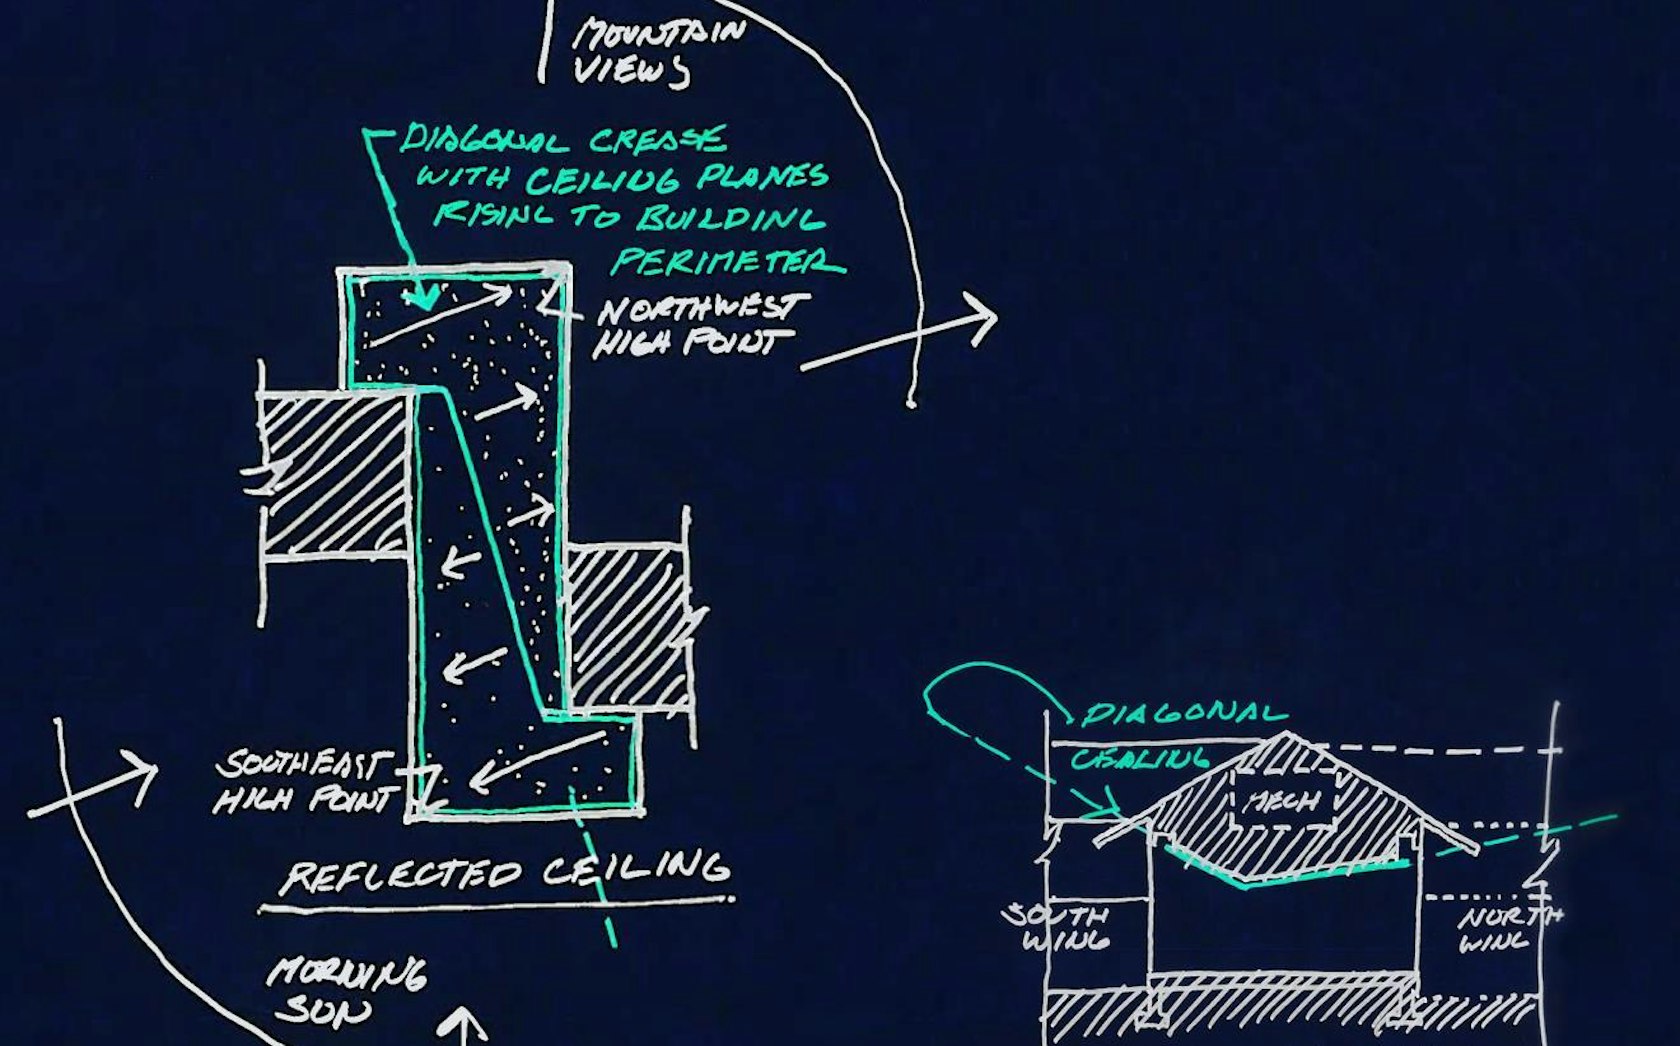 MOUNTAIN
VIEWS
DIAGONAL CREASE
WITH CEILING PLANES
RISING TO BUILDING
PERIMETER
NORTHWEST
HIGH POINT
SOUTHEAST
HIGH POINT
REFLECTED CEILING
MORNING
SUN
DIAGONAL
CEALING
MECH
SOUTH
WING
NORTH
WING